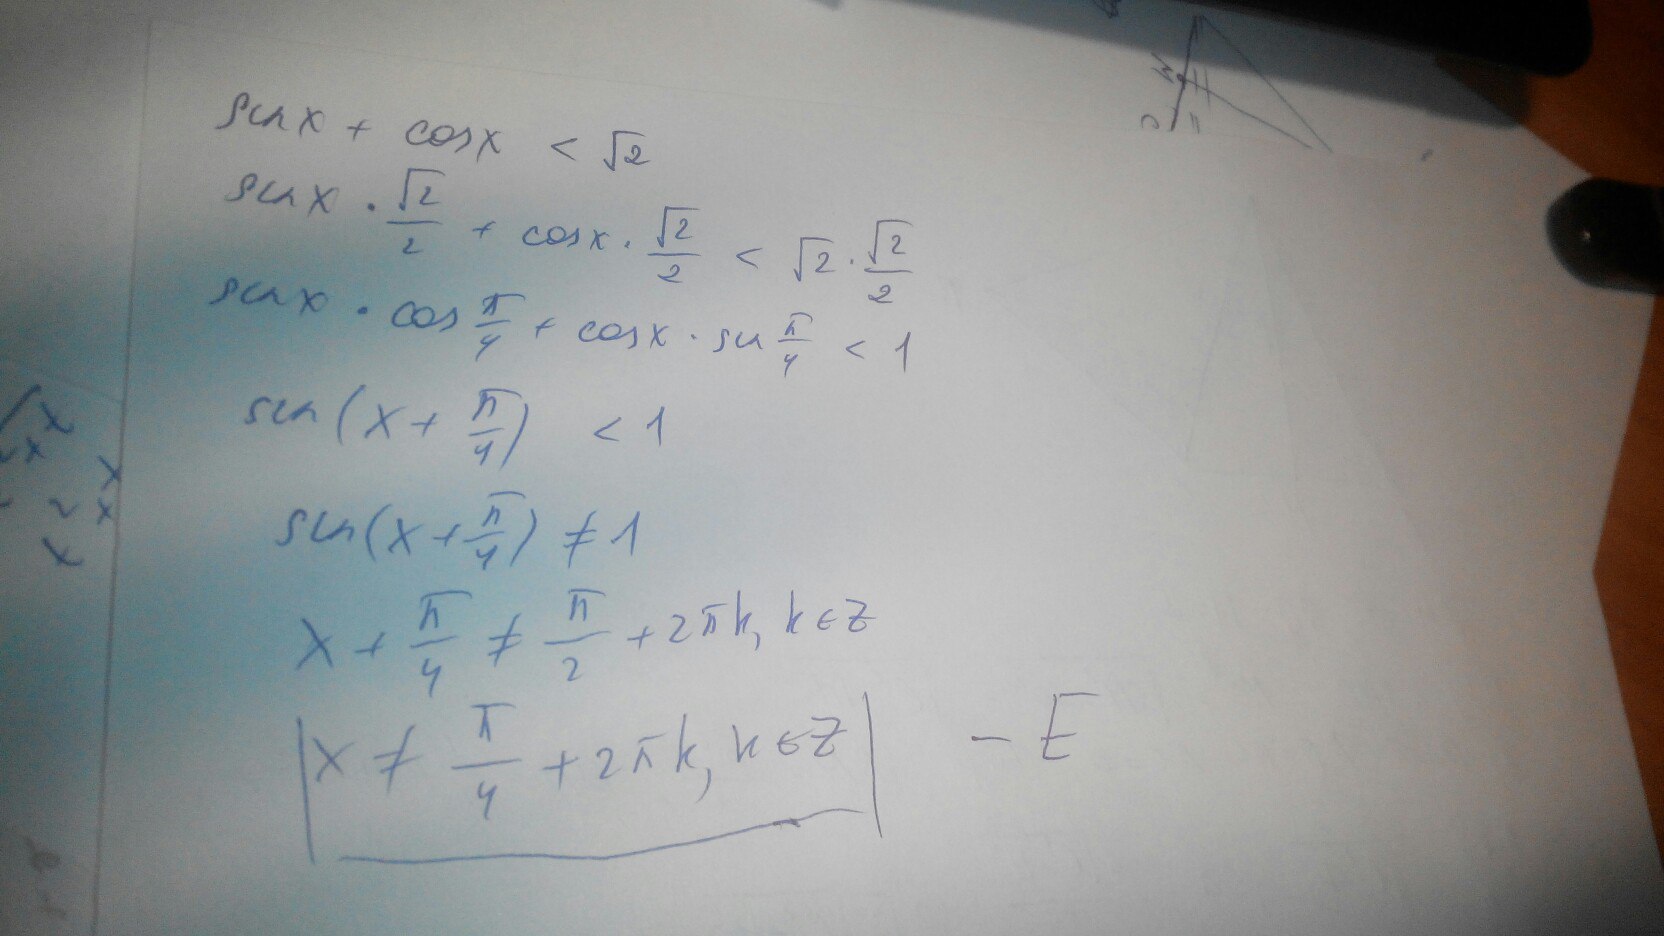 sin x + cos x < √2
sin x · √2/2 + cos x · √2/2 < √2 · √2/2
sin x · cos π/4 + cos x · sin π/4 < 1
sin(x + π/4) < 1
sin(x + π/4) ≠ 1
x + π/4 ≠ π/2 + 2πk, k ∈ Z
x ≠ π/4 + 2πk, k ∈ Z - E